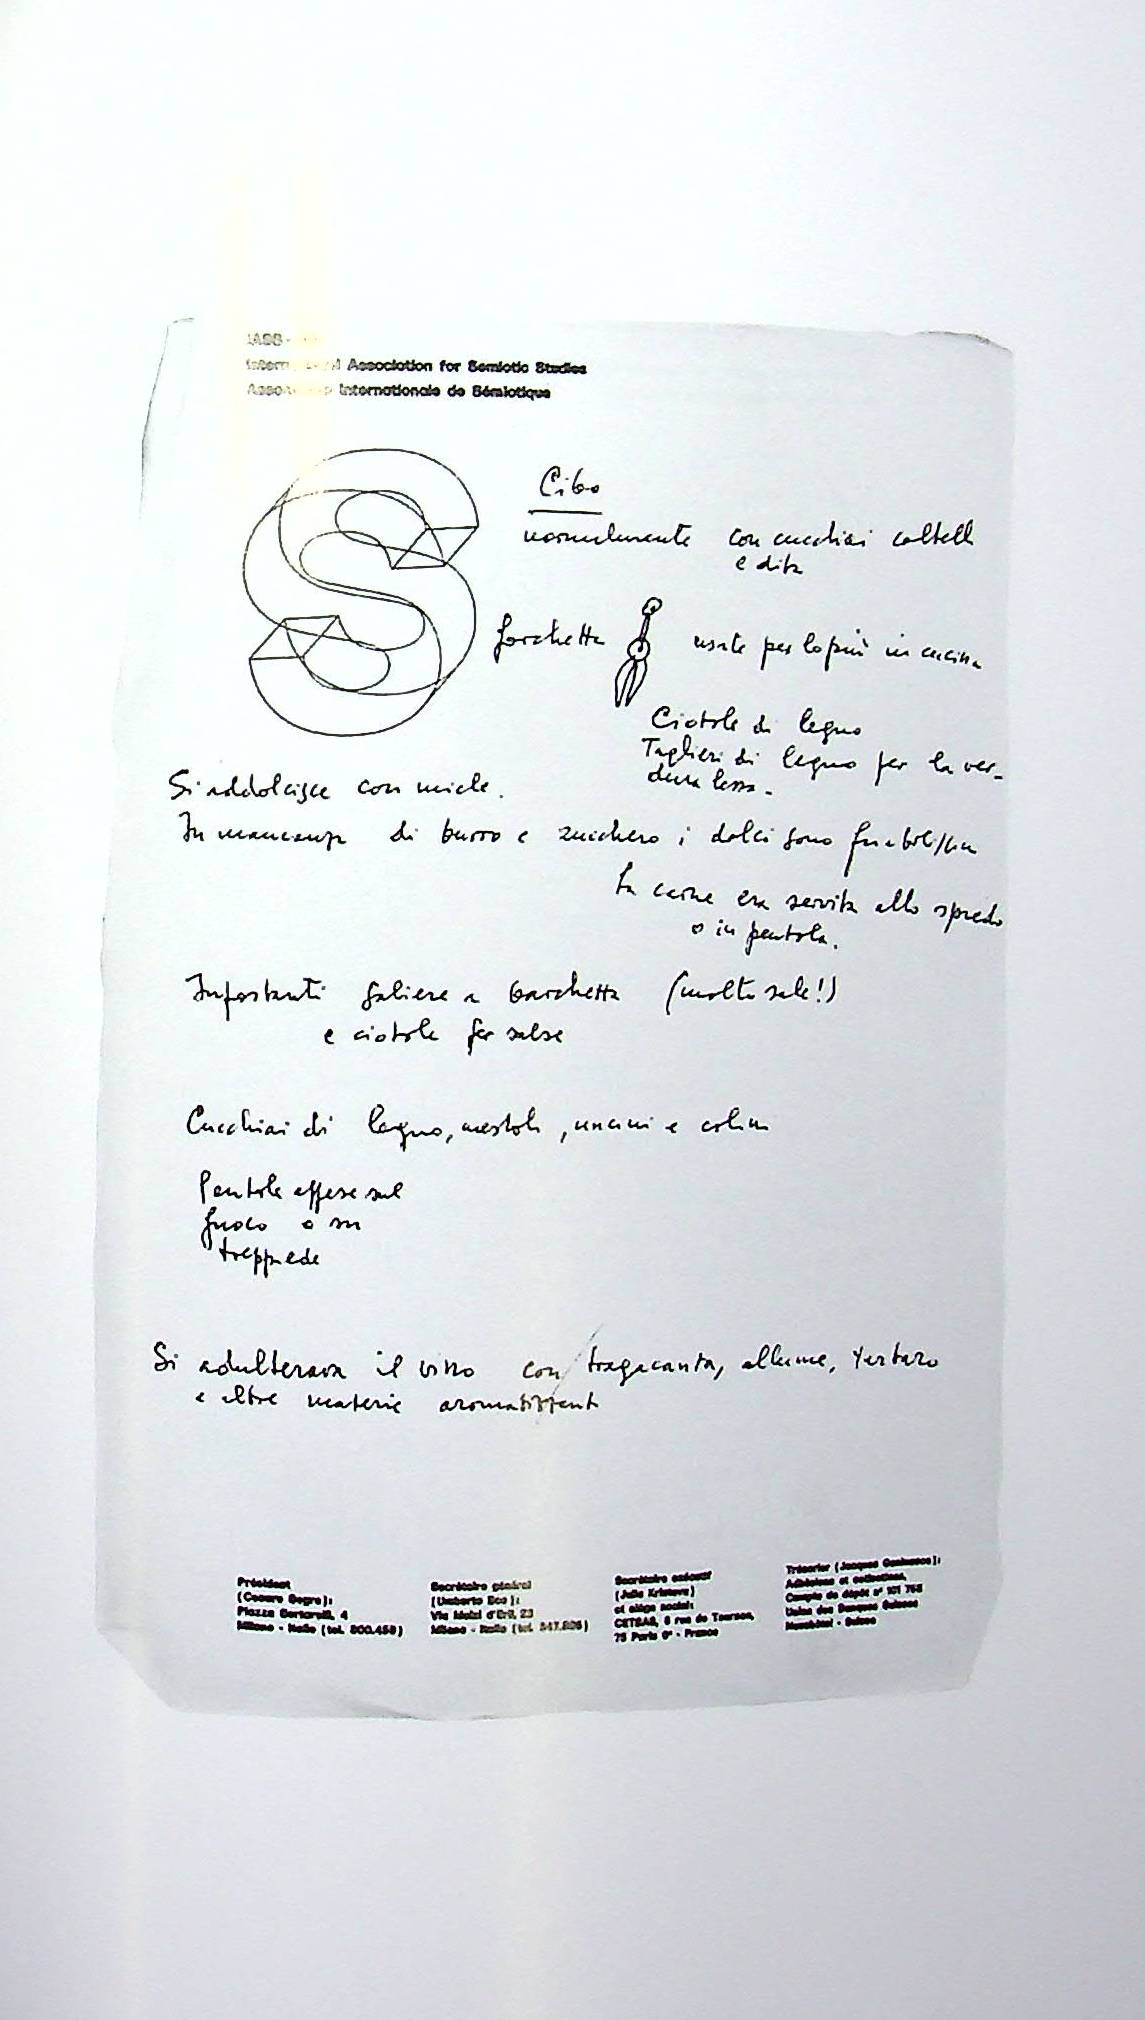 IASS -
International Association for Semiotic Studies
Association Internationale de Sémiotique
Cibo
normalmente con cucchiai coltelli
e dita
forchetta usate per lo più in cucina
Ciotole di legno
Taglieri di legno per la ver-
dura lessa.
Si addolcisce con miele.
In mancanza di burro e zucchero i dolci sono
La carne era servita allo spiedo
o in pentola.
Importanti saliere a barchetta (molto sale!)
e ciotole per salse
Cucchiai di legno, mestoli, uncini e colini
Pentole appese sul
fuoco o su
treppiede
Si adulterava il vino con tragacanta, allume, tartaro
e altre materie aromatizzanti
Président
(Cesare Segre):
Piazza Bertarelli, 4
Milano - Italie (tel. 800.459)
Secrétaire général
(Umberto Eco):
Via Melzi d'Eril, 23
Milano - Italie (tel. 347.826)
Secrétaire exécutif
(Julia Kristeva)
et siège social:
CETSAS, 6 rue de Tournon,
75 Paris 6e - France
Trésorier (Jacques Geninasca):
Adhésions et cotisations,
Compte de dépôt nº 101 765
Union des Banques Suisses
Neuchâtel - Suisse